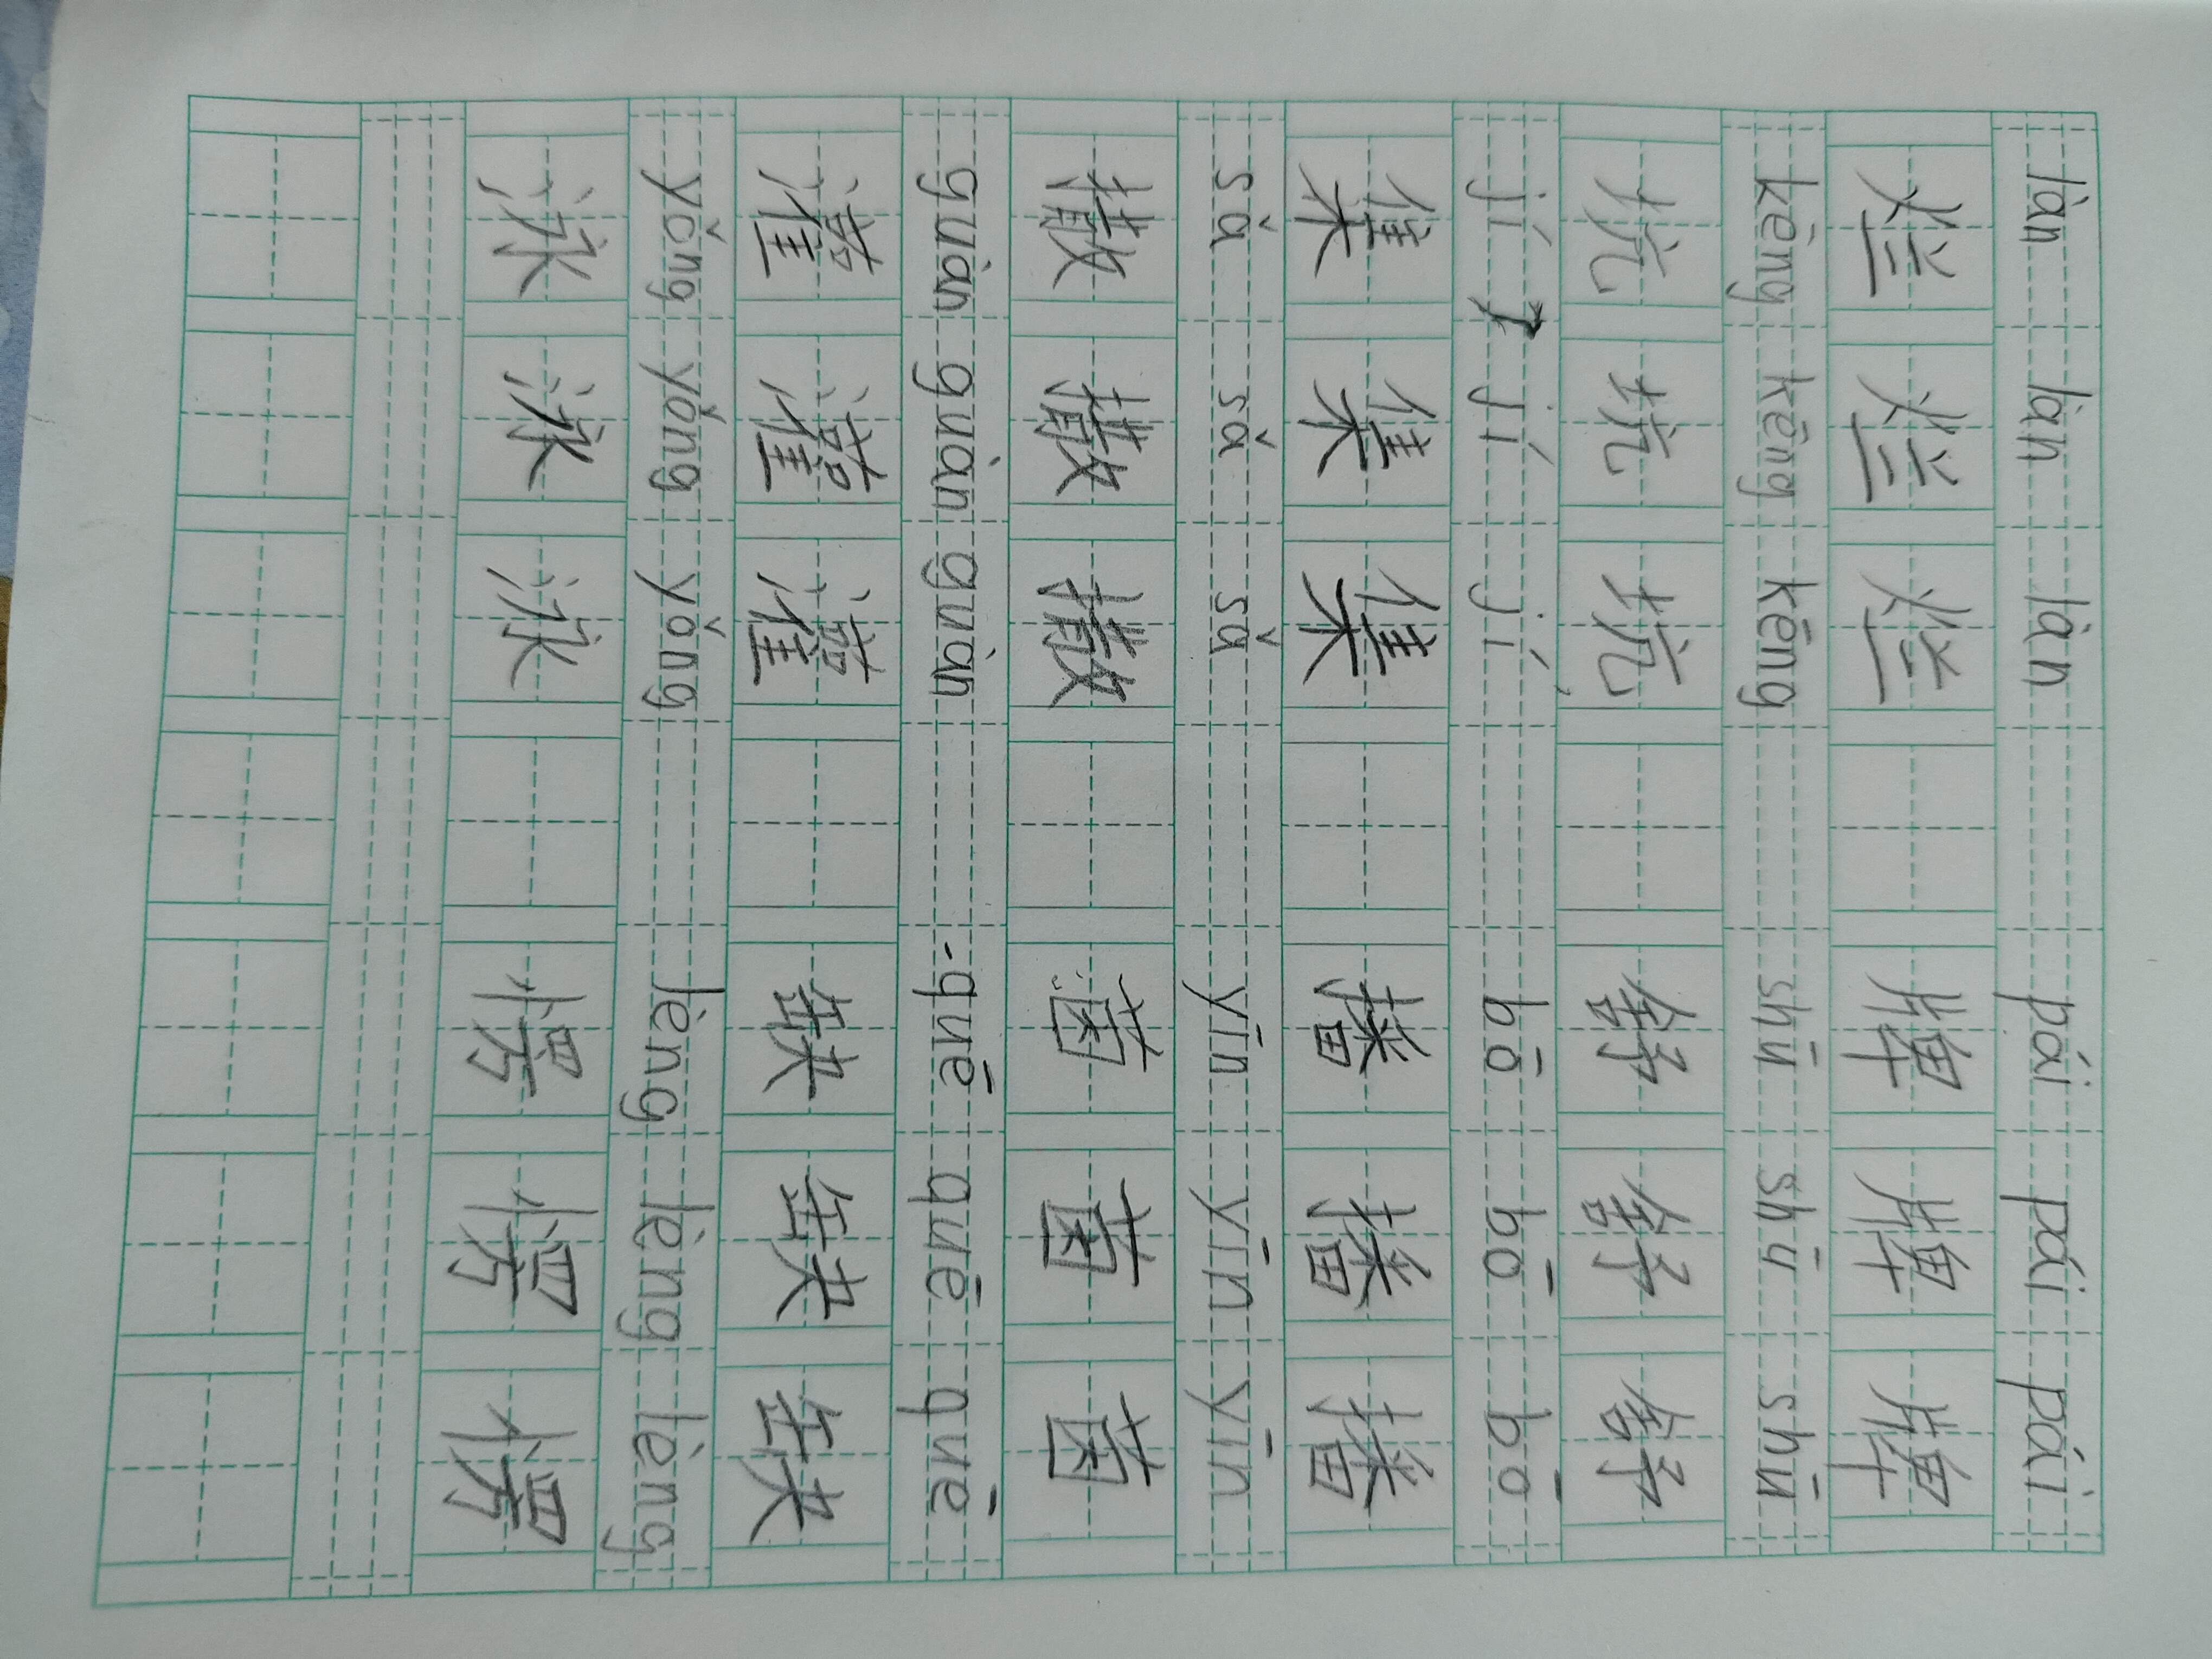 làn làn làn pái pái pái
烂 烂 烂 牌 牌 牌
kēng kēng kēng shū shū shū
坑 坑 坑 舒 舒 舒
jí jí jí bō bō bō
集 集 集 播 播 播
sǎ sǎ sǎ yīn yīn yīn
撒 撒 撒 茵 茵 茵
guàn guàn guàn quē quē quē
灌 灌 灌 缺 缺 缺
yǒng yǒng yǒng lèng lèng lèng
泳 泳 泳 愣 愣 愣